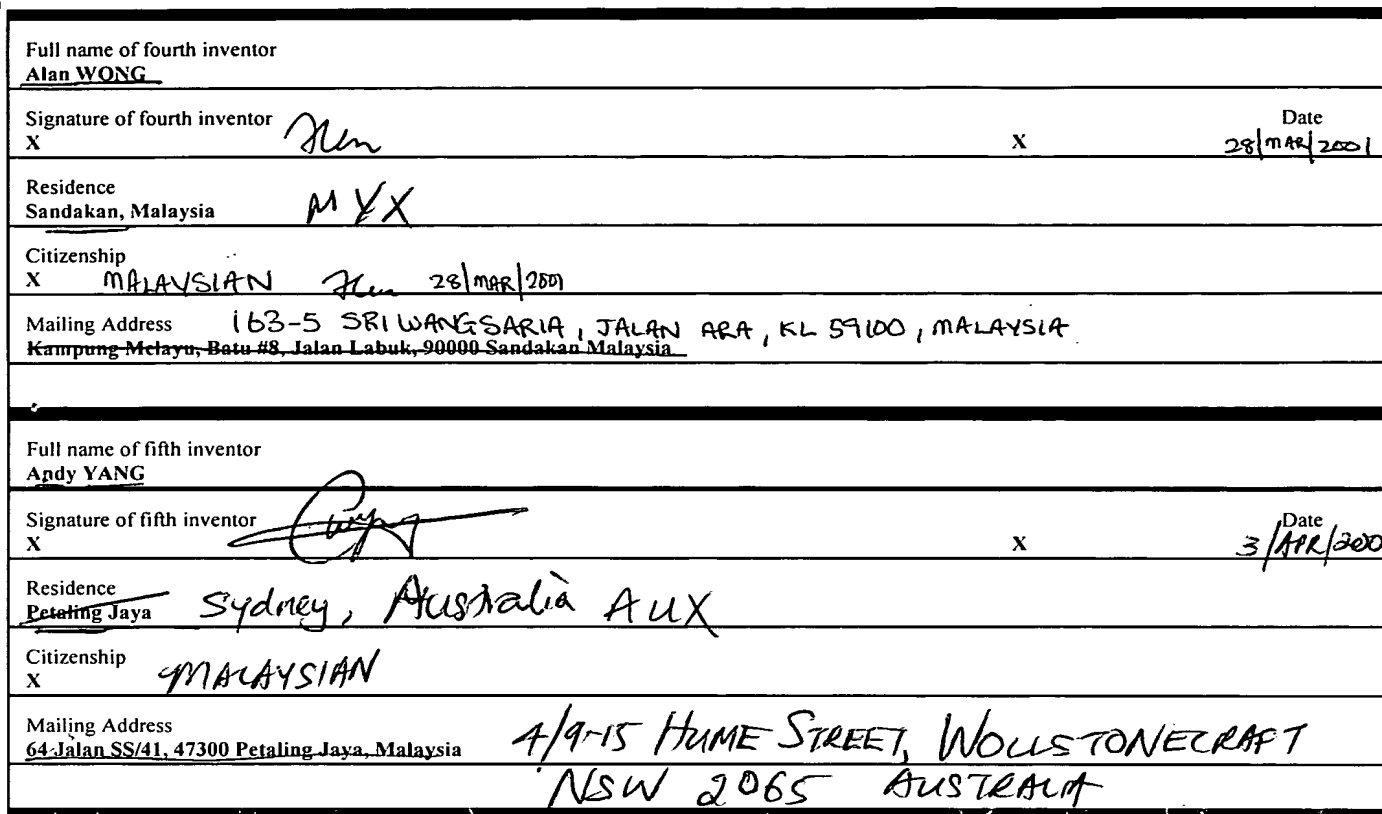 Full name of fourth inventor
Alan WONG
Signature of fourth inventor
Date
X X 28/MAR/2001
Residence
Sandakan, Malaysia MYX
Citizenship
X MALAYSIAN 28/MAR/2001
Mailing Address 163-5 SRI WANGSARIA, JALAN ARA, KL 59100, MALAYSIA
Kampung Melayu, Batu #8, Jalan Labuk, 90000 Sandakan Malaysia
Full name of fifth inventor
Andy YANG
Signature of fifth inventor
Date
X X 3/APR/200
Residence
Petaling Jaya Sydney, Australia AUX
Citizenship
X MALAYSIAN
Mailing Address
64 Jalan SS/41, 47300 Petaling Jaya, Malaysia 4/9-15 HUME STREET, WOLLSTONECRAFT
NSW 2065 AUSTRALIA